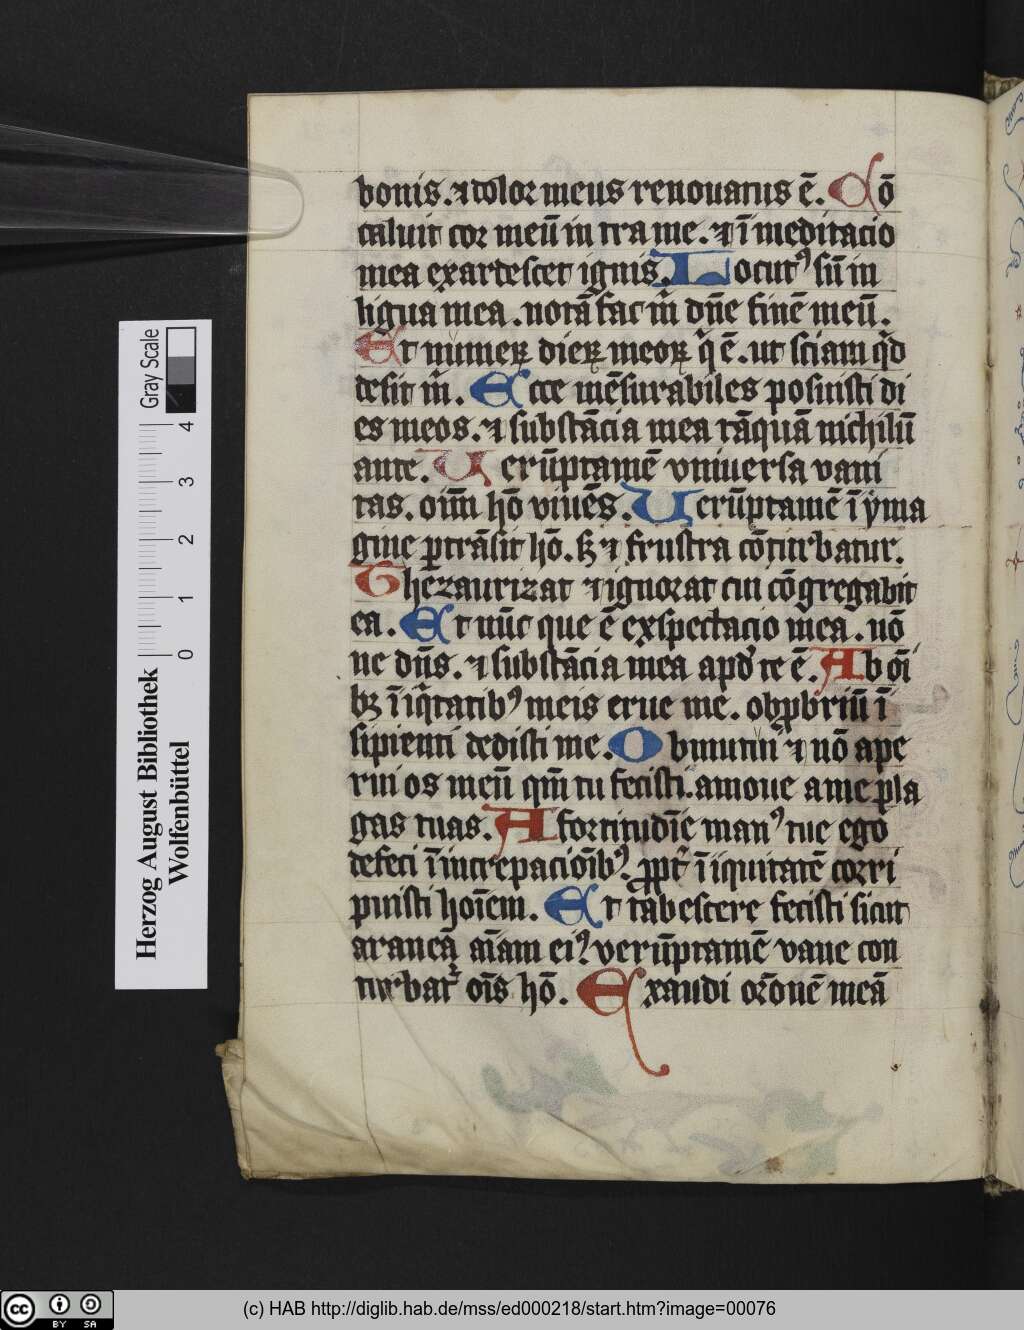 bonis. ⁊ dolor meus renouatus ē. Cō
caluit cor meū in tra me. ⁊ ī meditacio
mea exardescet ignis. Locutꝰ sū in
ligua mea. notā fac m̄ dn̄e finē meū.
Et numeꝝ dieꝝ meoꝝ q̄ ē. ut sciam qd̄
desit m̄. Ecce mēsurabiles posuisti di
es meos. ⁊ substācia mea tāquā nichilū
ante. Uerūptamē vniuersa vani
tas. oīm hō viuēs. Uerūptamē ī yma
gine ꝑtrāsit hō. sꝫ ⁊ frustra cōturbatur.
Thēzaurizat ⁊ ignorat cui cōgregabit
ea. Et nūc que ē exspectacio mea. nō
ne dn̄s. ⁊ substācia mea apd̓ te ē. Ab oī
bꝫ īiq̄tatibꝰ meis erue me. obꝓbriū ī
sipienti dedisti me. Obmutui ⁊ nō ape
rui os meū qm̄ tu fecisti. amoue a me pla
gas tuas. A fortitudīe manꝰ tue ego
defeci īincrepacioībꝰ. ꝓpt̓ īiquitatē corri
puisti hoīem. Et tābescere fecisti sicut
araneā aīam eiꝰ verūptamē vane con
turbat᷑ oīs hō. Exaudi orōnē meā
Herzog August Bibliothek
Wolfenbüttel
0 1 2 3 4
Gray Scale
cc BY SA
(c) HAB http://diglib.hab.de/mss/ed000218/start.htm?image=00076